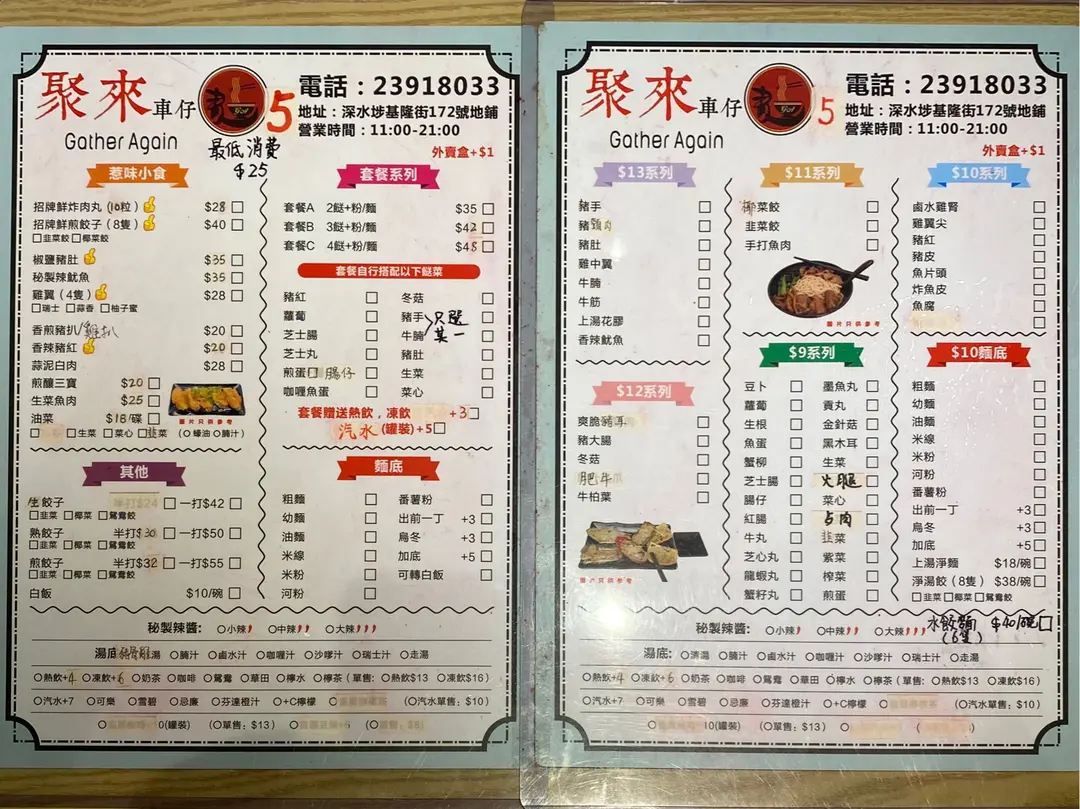 聚來車仔麵
Gather Again
5
電話：23918033
地址：深水埗基隆街172號地鋪
營業時間：11:00-21:00
最低消費
$25
外賣盒+$1
惹味小食
招牌鮮炸肉丸（10粒） $28
招牌鮮煎餃子（8隻） $40
韭菜餃 椰菜餃
椒鹽豬肚 $35
秘製辣魷魚 $35
雞翼（4隻） $28
瑞士 蒜香 柚子蜜
香煎豬扒/雞扒 $20
香辣豬紅 $20
蒜泥白肉 $28
煎釀三寶 $20
生菜魚肉 $20
圖片只供參考
油菜 $18/碟
生菜 菜心 韭菜 （蠔油 腩汁）
套餐系列
套餐A 2餸+粉/麵 $35
套餐B 3餸+粉/麵 $42
套餐C 4餸+粉/麵 $48
套餐自行搭配以下餸菜
豬紅 冬菇
蘿蔔 豬手
芝士腸 牛腩
只選其一
芝士丸 豬肚
煎蛋 腸仔 生菜
咖喱魚蛋 菜心
套餐贈送熱飲，凍飲 +3
汽水(罐裝)+5
其他
生餃子 半打$24 一打$42
韭菜 椰菜 鴛鴦餃
熟餃子 半打$30 一打$50
韭菜 椰菜 鴛鴦餃
煎餃子 半打$32 一打$55
韭菜 椰菜 鴛鴦餃
白飯 $10/碗
麵底
粗麵 番薯粉
幼麵 出前一丁 +3
油麵 烏冬 +3
米線 加底 +5
米粉 可轉白飯
河粉
秘製辣醬： 小辣 中辣 大辣
湯底 湯 腩汁 鹵水汁 咖喱汁 沙嗲汁 瑞士汁 走湯
熱飲+4 凍飲+6 奶茶 咖啡 鴛鴦 華田 檸水 檸茶（單售：熱飲$13 凍飲$16）
汽水+7 可樂 雪碧 忌廉 芬達橙汁 +C檸檬 （汽水單售：$10）
0(罐裝) （單售：$13）
聚來車仔麵
Gather Again
5
電話：23918033
地址：深水埗基隆街172號地鋪
營業時間：11:00-21:00
外賣盒+$1
$13系列
豬手
豬頸肉
豬肚
雞中翼
牛腩
牛筋
上湯花膠
香辣魷魚
$12系列
爽脆豬耳
豬大腸
冬菇
肥牛
牛柏葉
圖片只供參考
$11系列
椰菜餃
韭菜餃
手打魚肉
圖片只供參考
$9系列
豆卜 墨魚丸
蘿蔔 貢丸
生根 金針菇
魚蛋 黑木耳
蟹柳 生菜
芝士腸 火腿
腸仔 菜心
紅腸 卤肉
牛丸 韭菜
芝心丸 紫菜
龍蝦丸 榨菜
蟹籽丸 煎蛋
$10系列
鹵水雞腎
雞翼尖
豬紅
豬皮
魚片頭
炸魚皮
魚腐
$10麵底
粗麵
幼麵
油麵
米線
米粉
河粉
番薯粉
出前一丁 +3
烏冬 +3
加底 +5
上湯淨麵 $18/碗
淨湯餃（8隻） $38/碗
韭菜 椰菜 鴛鴦餃
水餃麵 $40/碗
(6隻)
秘製辣醬： 小辣 中辣 大辣
湯底： 清湯 腩汁 鹵水汁 咖喱汁 沙嗲汁 瑞士汁 走湯
熱飲+4 凍飲+6 奶茶 咖啡 鴛鴦 華田 檸水 檸茶（單售：熱飲$13 凍飲$16）
汽水+7 可樂 雪碧 忌廉 芬達橙汁 +C檸檬 （汽水單售：$10）
10(罐裝) （單售：$13）